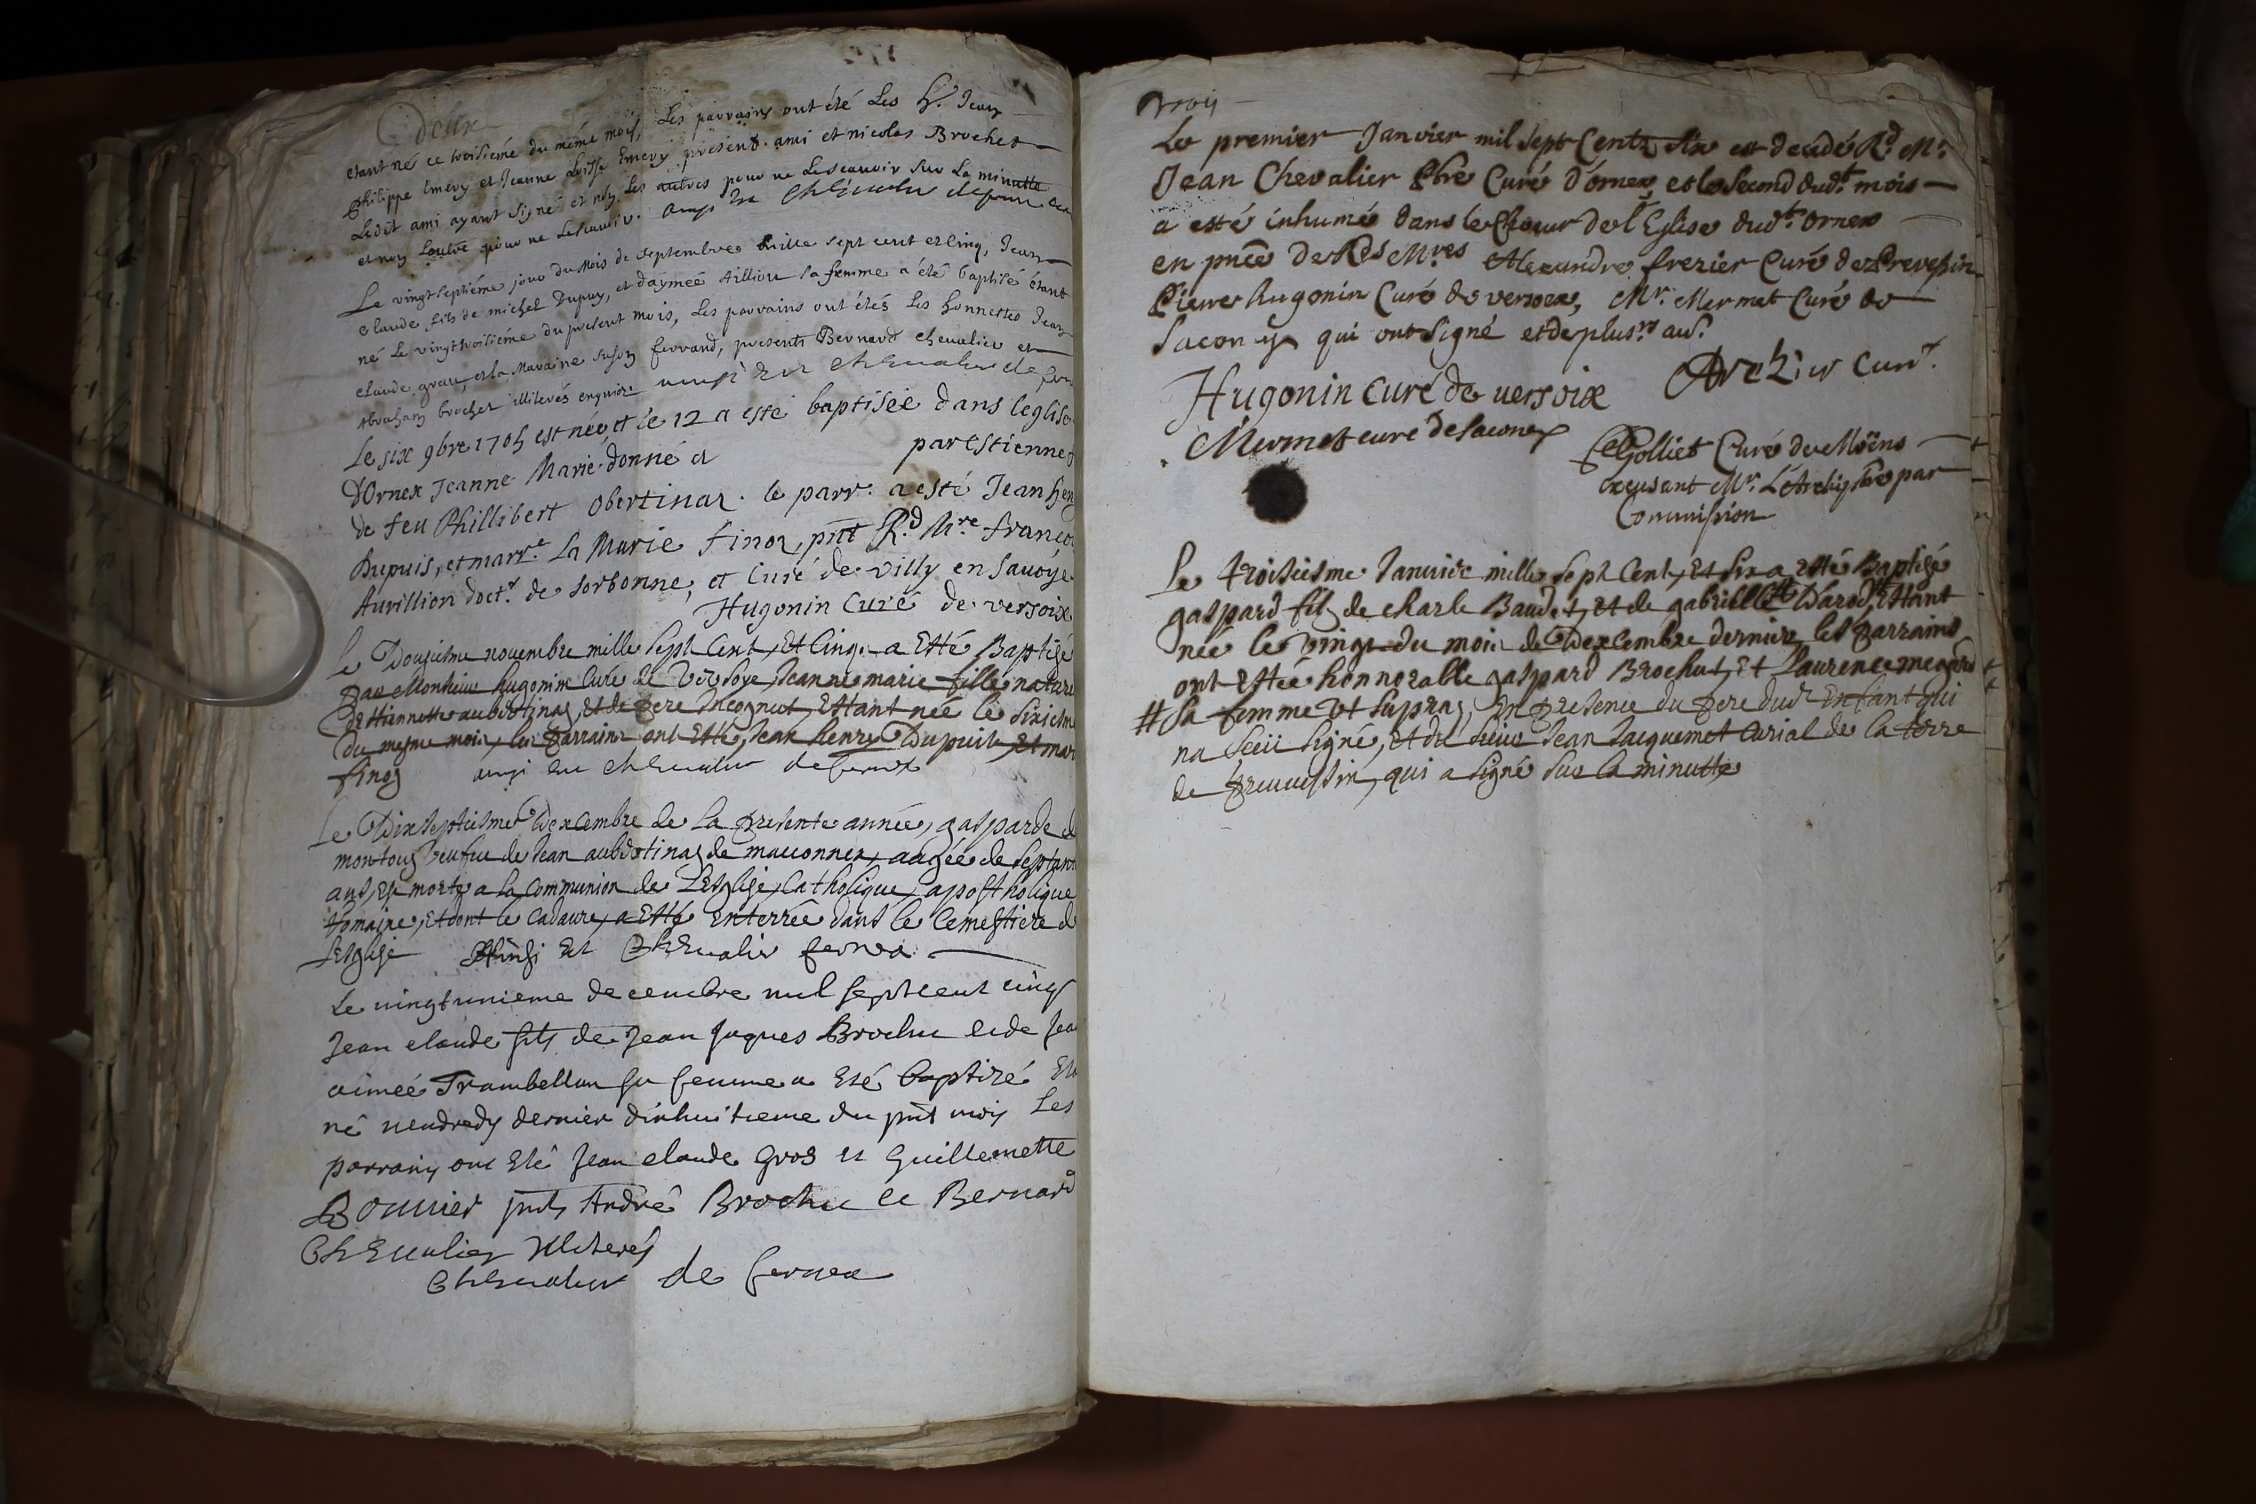 deux
etant né ce troisiéme du méme mois, Les parrains ont été Les h. Jean
Philippe Emery et Jeanne Loise Emery presents ami et nicolas Brochet
Ledit ami ayant signé et non les autres pour ne Lescauoir sur La minutte
et non Lautre pour ne Lescauoir. ainsi est chevalier de fernex
Le vingtseptiéme jour du Mois de septembre mille sept cent et cinq, Jean
claude fils de michel Dupuy, et daymeé Aillion sa femme a été baptisé étant
né Le vingttroisiéme du present mois, Les parrains ont étés Les honnestes Jean
claude grau, et la Maraine suson ferrand, presents Bernard chevalier et
Abraham brochet illiterés enquis ainsi est chevalier de fernex
Le six 9bre 1705 est née et le 12 a esté baptisée dans leglise
d'Ornex Jeanne Marie donné a par Estienne
de feu Phillibert Obertinaz. le parr. a esté Jean hen
Dupuis, et marr.e La Marie finoz, pnt R.d M.re Franco
Aurillion doct.r de sorbonne, et Curé de villy en Savoye
Hugonin Curé de versoix
Le Dousiesme novembre mille sept Cent, Et Cinq. a Etté Baptisé
par Monsieur hugonin Curé de Versoye, Jeanne marie fille nature
DEttiennette aubertinaz, Et de pere Incognut, Ettant née le sixiesme
Du mesme mois, les parrains ont Etté, Jean henry Dupuit, Et mar
finoz ainsi est chevalier de fernex
Le Dixseptiesme Dexcembre de la presente année, gasparde d
montouz veufue de Jean aubertinaz de maconnex, aagée de septante
ans, Est morte a la Communion de L'Esglise, Catholique, apostholique
Romaine, Et dont le Cadaure, a Etté Enterrée dans le Cemestiere d
L'Esglise Ainsi Est Chevalier fernex
Le uingtunieme decembre mil sept cent cinq
Jean claude fils de Jean Jaques Brochu et de Jea
aimeé Trambellan sa femme a Eté baptizé Eta
né uendredy dernier dixhuitieme du pnt mois Les
parrains ont Eté Jean claude Gros et Guillemette
Bouuier pnts André Brochu et Bernard
Chevalier Illiterés
Chevalier de fernex
Trois
Le premier Janvier mil sept Centz six est decedé R.d M.r
Jean Chevalier Pbre Curé d'ornex, et le second dud.t mois
a esté inhumé dans le Choeur de l'Eglise dud.t ornex
en pnce de R.ds M.res Alexandre frezier Curé de Prevessin
Pierre hugonin Curé de versoix, M.r Mermet Curé de
Saconex qui ont signé et de plus.rs au.s
Hugonin curé de versoix
Mermet curé de saconex
Golliet Curé de Moëns
excusant M.r L'Archiptre par
Commission
Le troisiesme Januier mille sept Cent, Et six a Etté Baptisé
gaspard fils de charle Baudet, Et de gabrielle Darod, Ettant
née le vingt du mois de Dexcembre dernier, les parrains
ont Ettée honnorable gaspard Brochut, Et Laurence megard
# sa femme Vt supraz, En presence du pere dud.t Enfant qui
na sceü signé, Et du sieur Jean Jacquemet Curial de la terre
de preuuessin, qui a signé sur la minutte